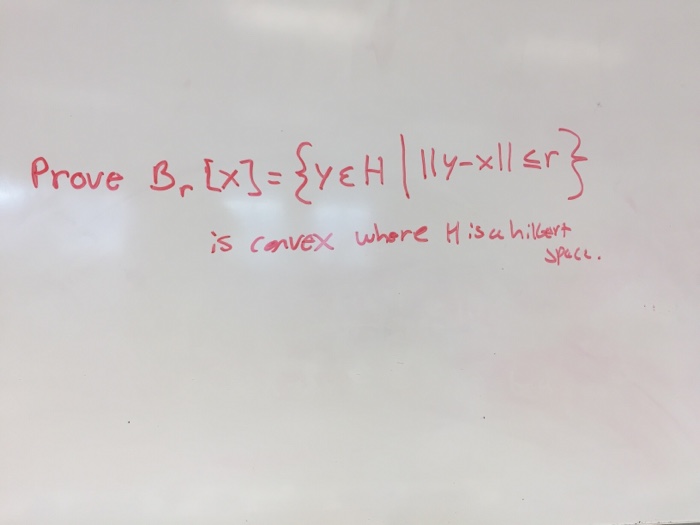 Prove Br [x] = {y ∈ H | ||y-x|| ≤ r}
is convex where H is a hilbert
space.